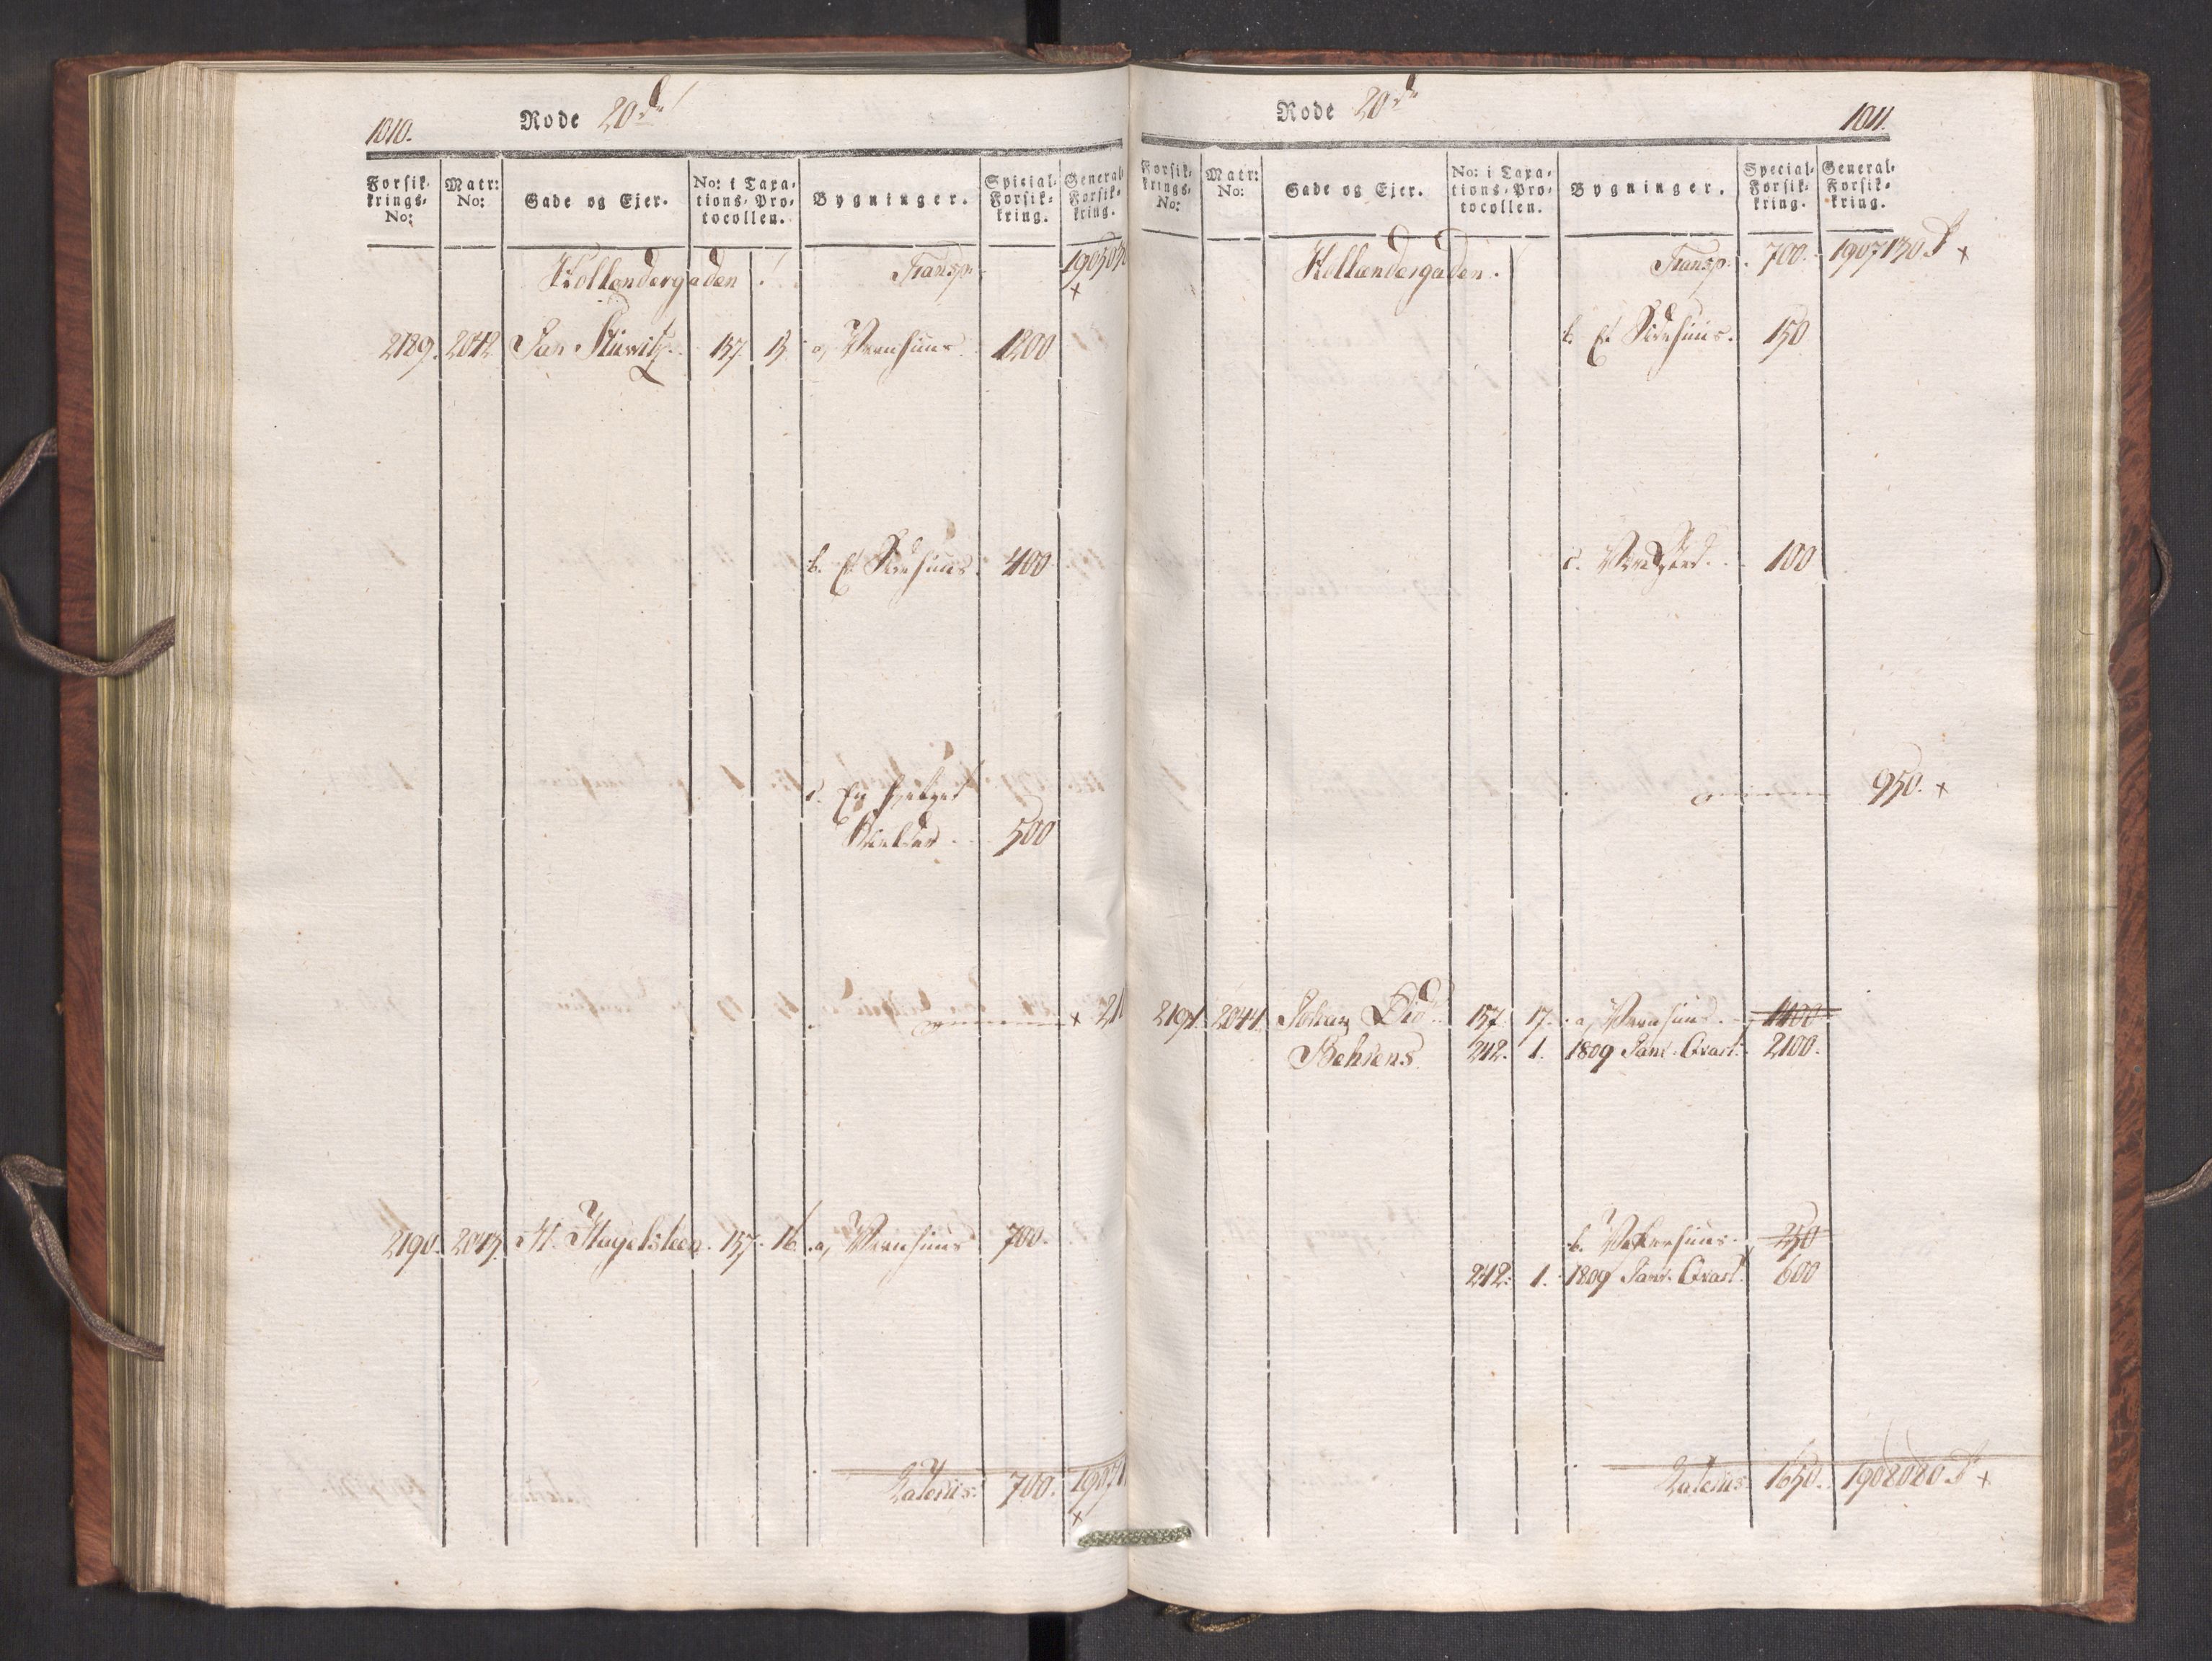 1010.
Rode 20de
Forsik-
krings-
No:
Matr:
No:
Gade og Ejer.
No: i Taxa-
tions-Pro-
tocollen.
Bygninger.
Special-
Forsik-
kring.
General-
Forsik-
kring.
Hollændergaden Transp.
2189. 2042 Jan 157. 15 a, Vaanhuus 1200
b. Et Sidehuus 400
c. En
Kielder 500
2190. 2043. H. Hagelsteen. 157. 16 a, Vaanhuus 700.
Lateris: 700.
Rode 20de
1011.
Forsik-
krings-
No:
Matr:
No:
Gade og Ejer.
No: i Taxa-
tions-Pro-
tocollen.
Bygninger.
Special-
Forsik-
kring.
General-
Forsik-
kring.
Hollændergaden. Transp. 700. 1907130.
b. Et Sidehuus. 150
c. 100
950.
2191. 2044. Johan Did 157. 17. a, Vaanhuus 1400
Behrens 242. 1. 1809 Janr. Qvart. 2100.
b. 250
242. 1. 1809 Janr. Qvart. 600
Lateris 1650. 1908080